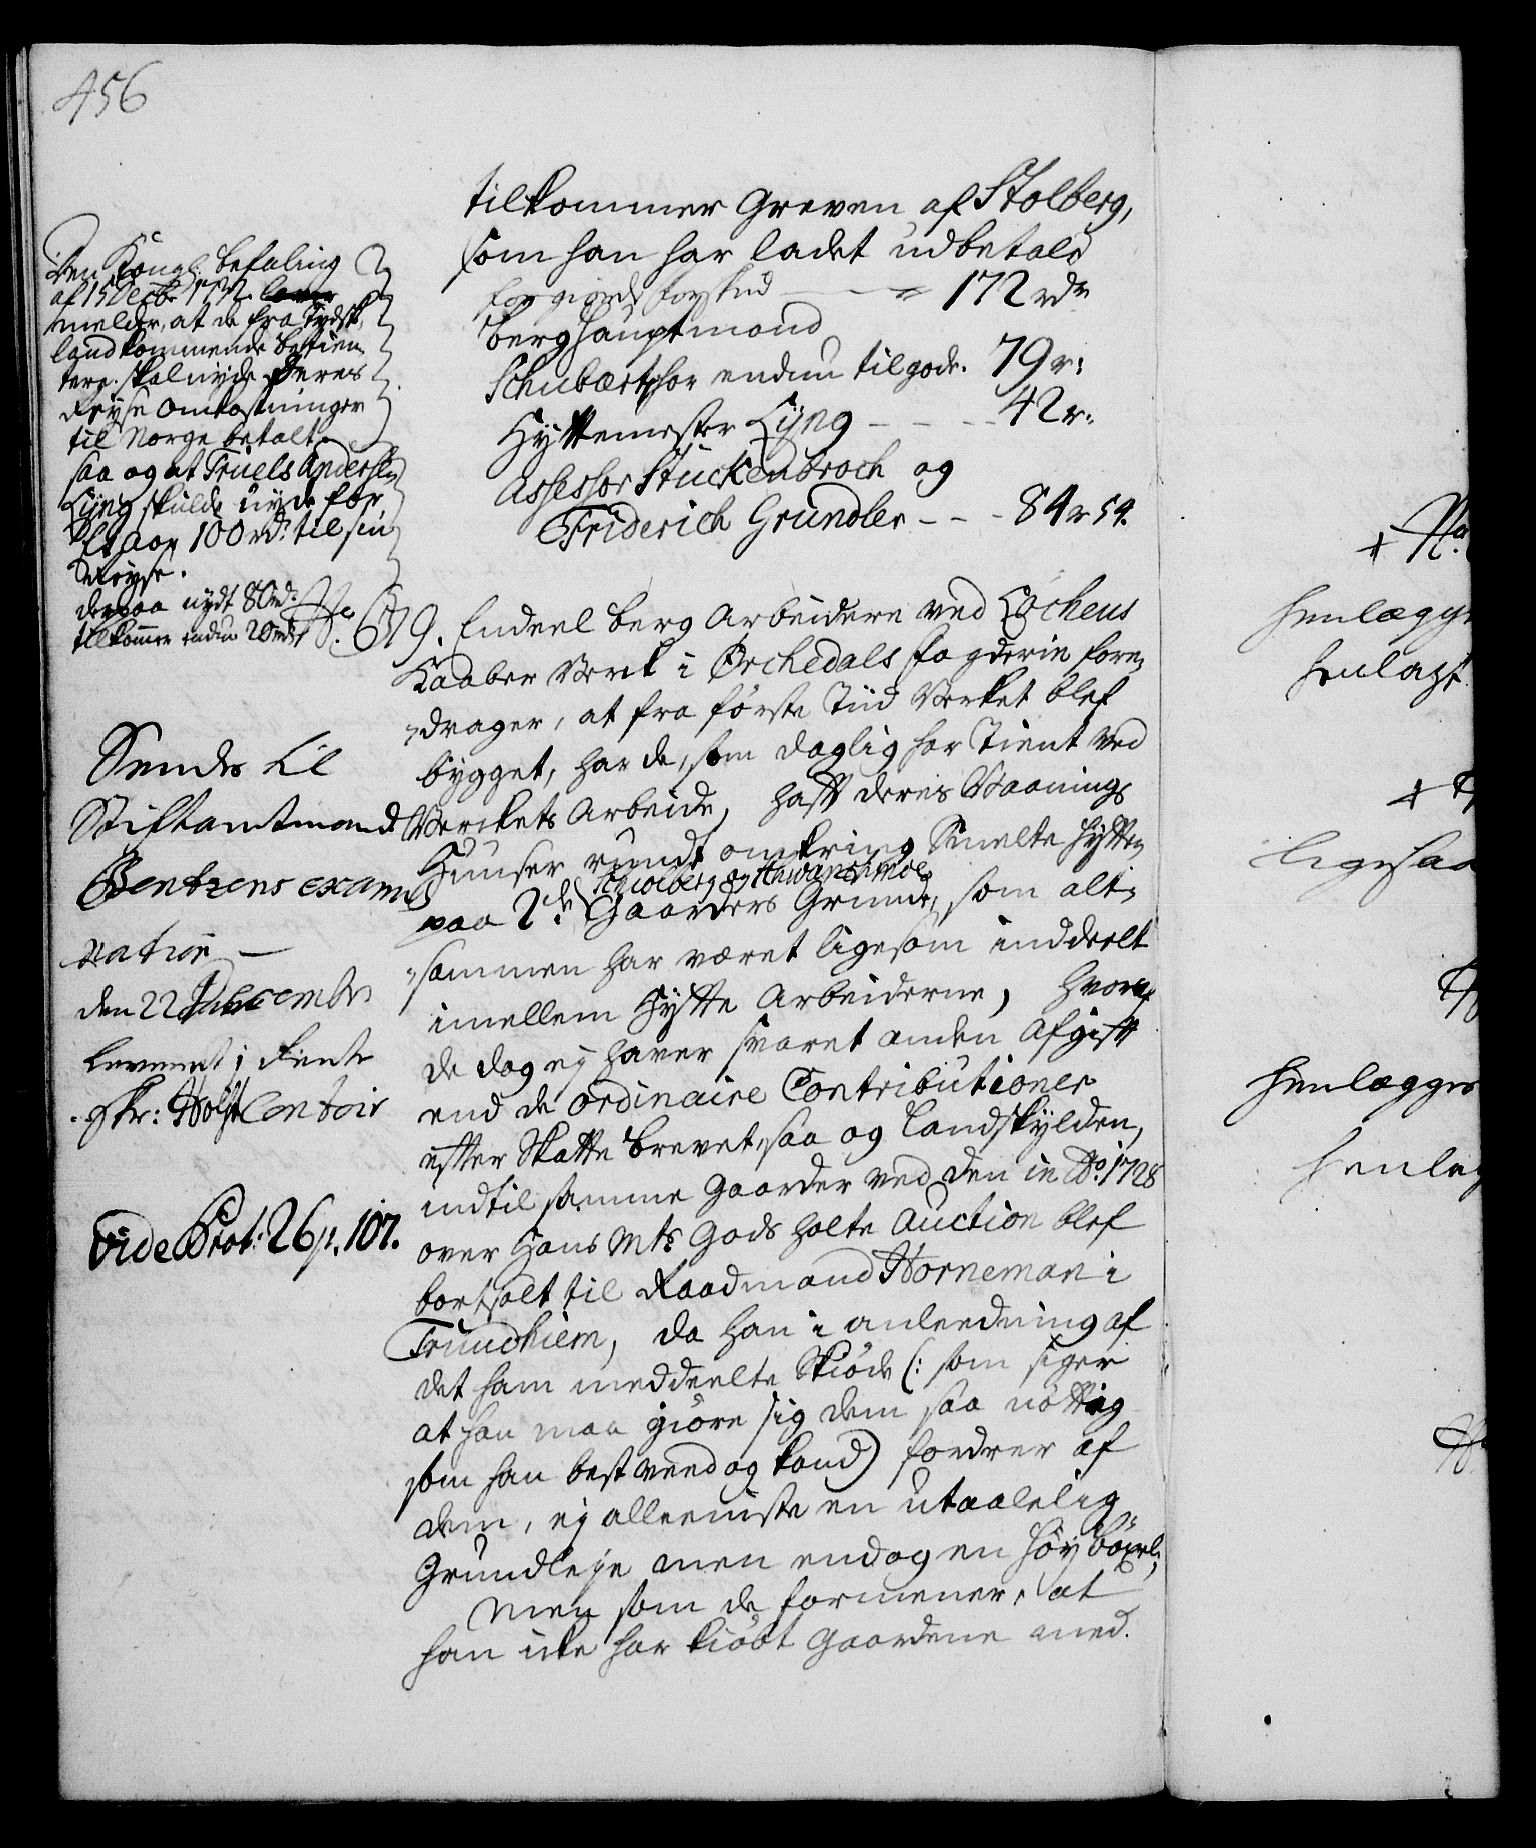 456
tilkommer Greven af Stolberg,
som han har ladet udbetale
for giorde forskud — 172 rdr
Berghauptmand
Schubart har endnu tilgode. 79 r:
Hyttemester Lyng - - - 42 r:
Assessor Stuckenbroch og
Friderich Grundler - - - 84 r 54.
Den Kongl: befaling
af 15 Decbr
melder, at de fra Tydsk
land kommende betien
tere skal nyde deres
Reyse Omkostninger
til Norge betalt
saa og at Truels Andersen
Lyng skulde nyde for
100 rd: til sin
Reyse.
derpaa nydt 80 rd:
tilkommer endnu 20 rdr
No. 679. Endeel berg Arbeidere ved Löchens
Kaaber Verk i Örchedals fogderie fore,
drager, at fra förste Tiid Verket blef
bygget, har de, som daglig har tient ved
Verckets Arbeide, hafft deres Vaanings
Huuser rundt omkring Smelte hytten
paa 2de Gaarders Grund, som alt,
sammen har været ligesom inddeelt
imellem Hytte Arbeiderne, hvoraf
de dog ej haver svaret anden Afgifft
end de ordinaire Contributioner
effter Skatte brevet, saa og Landskylden,
indtil samme Gaarder ved den in Ao. 1728
over Hans Mts Gods holte Auction blef
bortsolt til Raadmand Horneman i
Trundhiem, da han i anleedning af
det ham meddeelte Skiöde (: som siger
at han maa giöre sig dem saa nöttig
som han best veed og kand) fordrer af
dem, ej alleeniste en utaalelig
Grundleye men endog en höy böxel;
Men som de formener, at
han icke har kiöbt Gaardene med.
Sendes til
Stiftamtmand
Bentzens exami
nation —
den 22 Decembr
Leveret i Rente
skr: Holst Contoir
Vide Prot: 26 p. 107.
+ No.
henlægges
henlagt
+
ligesaa
henlægges
henleg